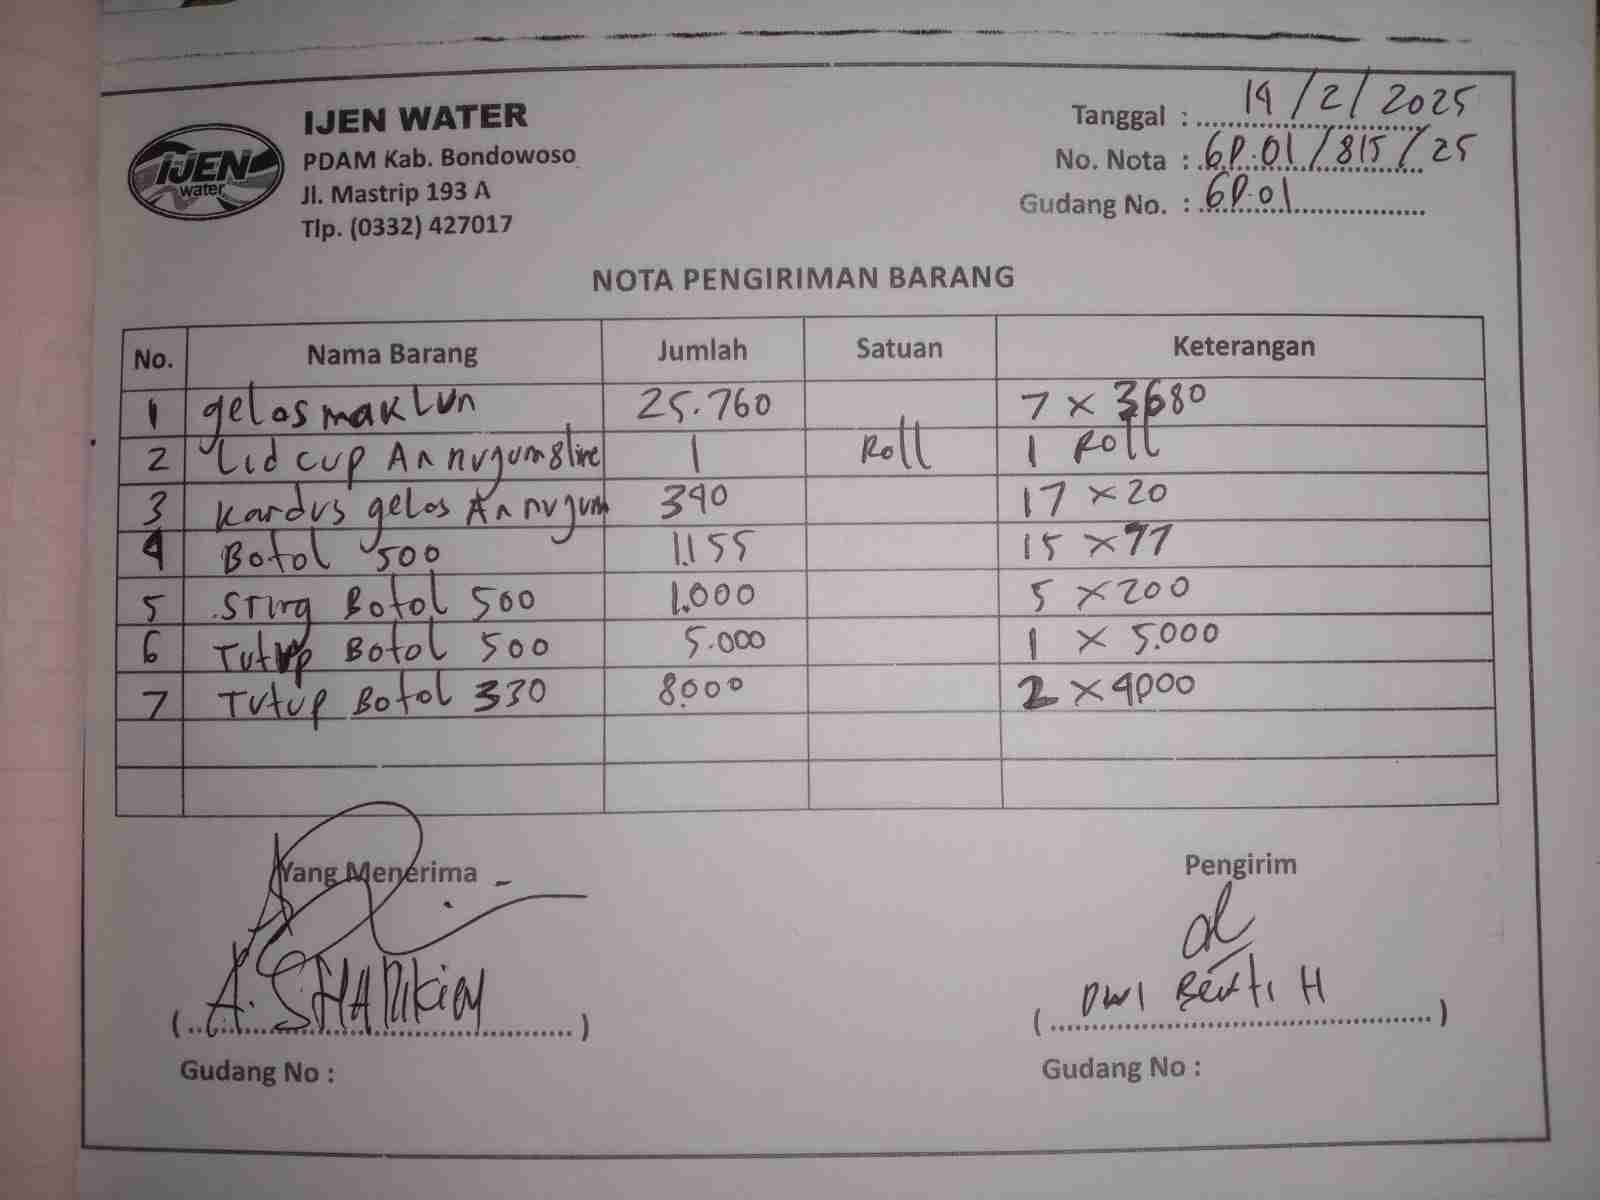 IJEN water
IJEN WATER
PDAM Kab. Bondowoso
Jl. Mastrip 193 A
Tlp. (0332) 427017
Tanggal : 14/2/2025
No. Nota : GP.01/815/25
Gudang No. : GP.01
NOTA PENGIRIMAN BARANG
No. Nama Barang Jumlah Satuan Keterangan
1 gelas maklun 25.760 7 x 3680
2 Lid cup An nujum 8 line 1 Roll 1 Roll
3 Kardus gelas An nujum 340 17 x 20
4 Botol 500 1.155 15 x 77
5 String Botol 500 1.000 5 x 200
6 Tutup Botol 500 5.000 1 x 5.000
7 Tutup Botol 330 8.000 2 x 4000
Yang Menerima Pengirim
(A.) (DWI H)
Gudang No : Gudang No :